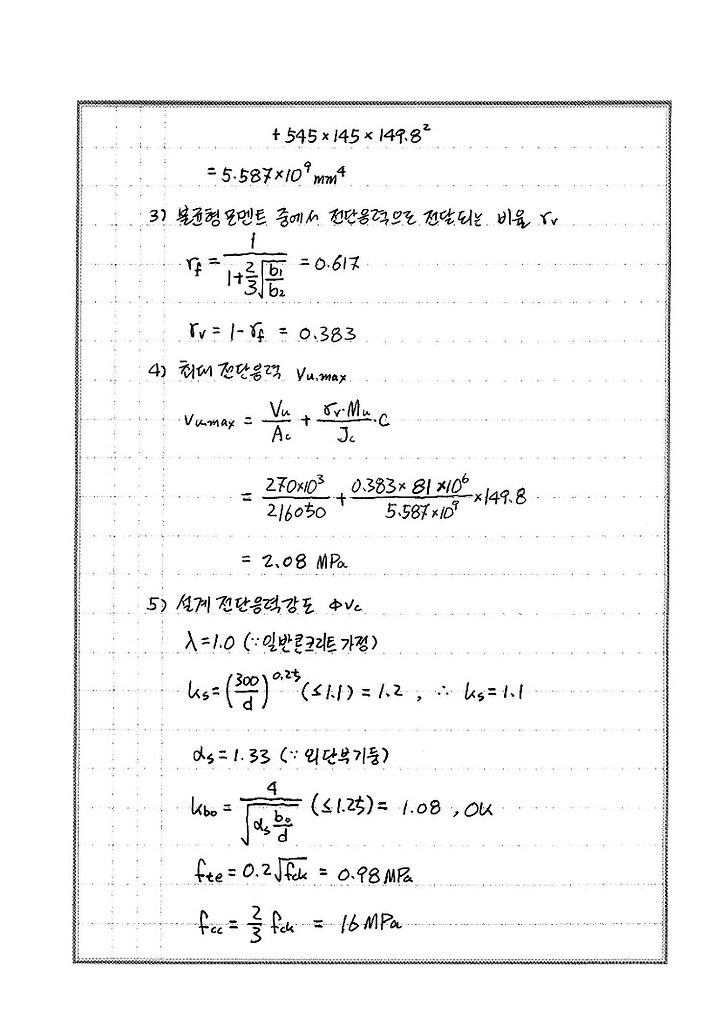 + 545 × 145 × 149.8²
= 5.587×10⁹ mm⁴
3) 불균형모멘트 중에서 전단응력으로 전달되는 비율 γv
γf = 1 / (1+2/3√(b₁/b₂)) = 0.617
γv = 1 - γf = 0.383
4) 최대 전단응력 Vu.max
Vu.max = Vu/Ac + γv·Mu/Jc · C
= 270×10³/216050 + 0.383×81×10⁶/5.587×10⁹ ×149.8
= 2.08 MPa
5) 설계 전단응력강도 φVc
λ=1.0 (∵일반콘크리트 가정)
ks = (300/d)^0.25 (≤1.1) = 1.2 , ∴ ks = 1.1
αs = 1.33 (∵ 외단부기둥)
kbo = 4/√(αs b₀/d) (≤1.25) = 1.08 , OK
fte = 0.2√fck = 0.98 MPa
fcc = 2/3 fck = 16 MPa